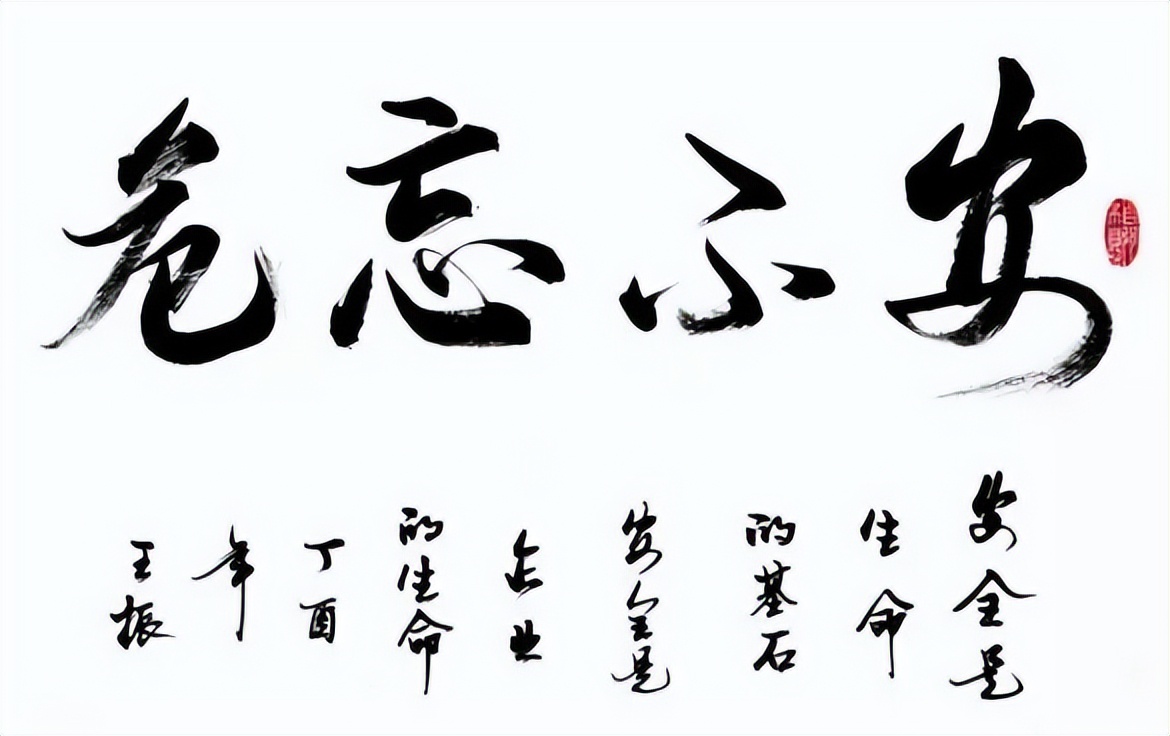 安不忘危
安全是
生命
的基石
安全是
企业
的生命
丁酉
年
王振